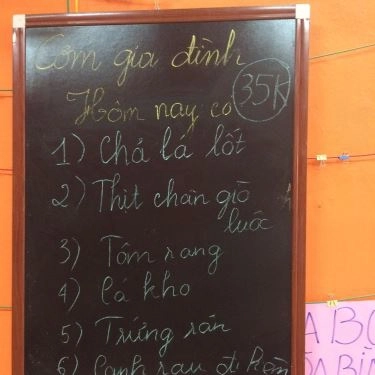 Cơm gia đình
Hôm nay có 35K
1) Chả lá lốt
2) Thịt chân giò
luộc
3) Tôm rang
4) Cá kho
5) Trứng rán
6) Canh rau đi kèm
ABO